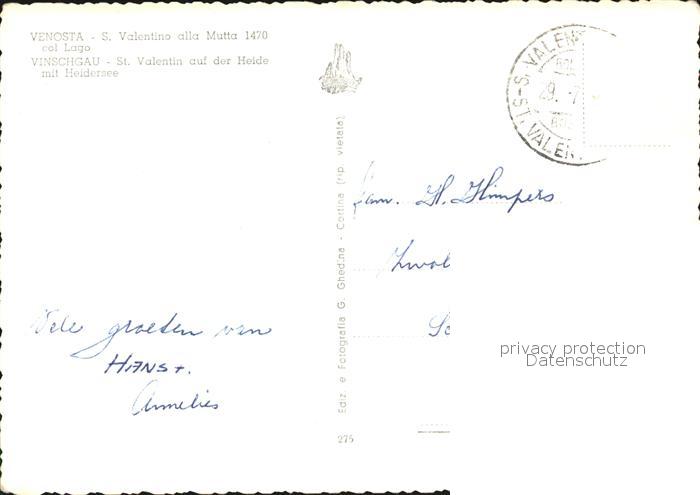 VENOSTA - S. Valentino alla Mutta 1470
col Lago
VINSCHGAU - St. Valentin auf der Heide
mit Heidersee
Vele groeten van
HANS+.
Annelies
Ediz. e Fotografia G. Ghedina - Cortina (rip. vietata)
275
S. VALEN
ST. VALEN
29. 7
Fam. H. Himpers
Zwol
privacy protection
Datenschutz